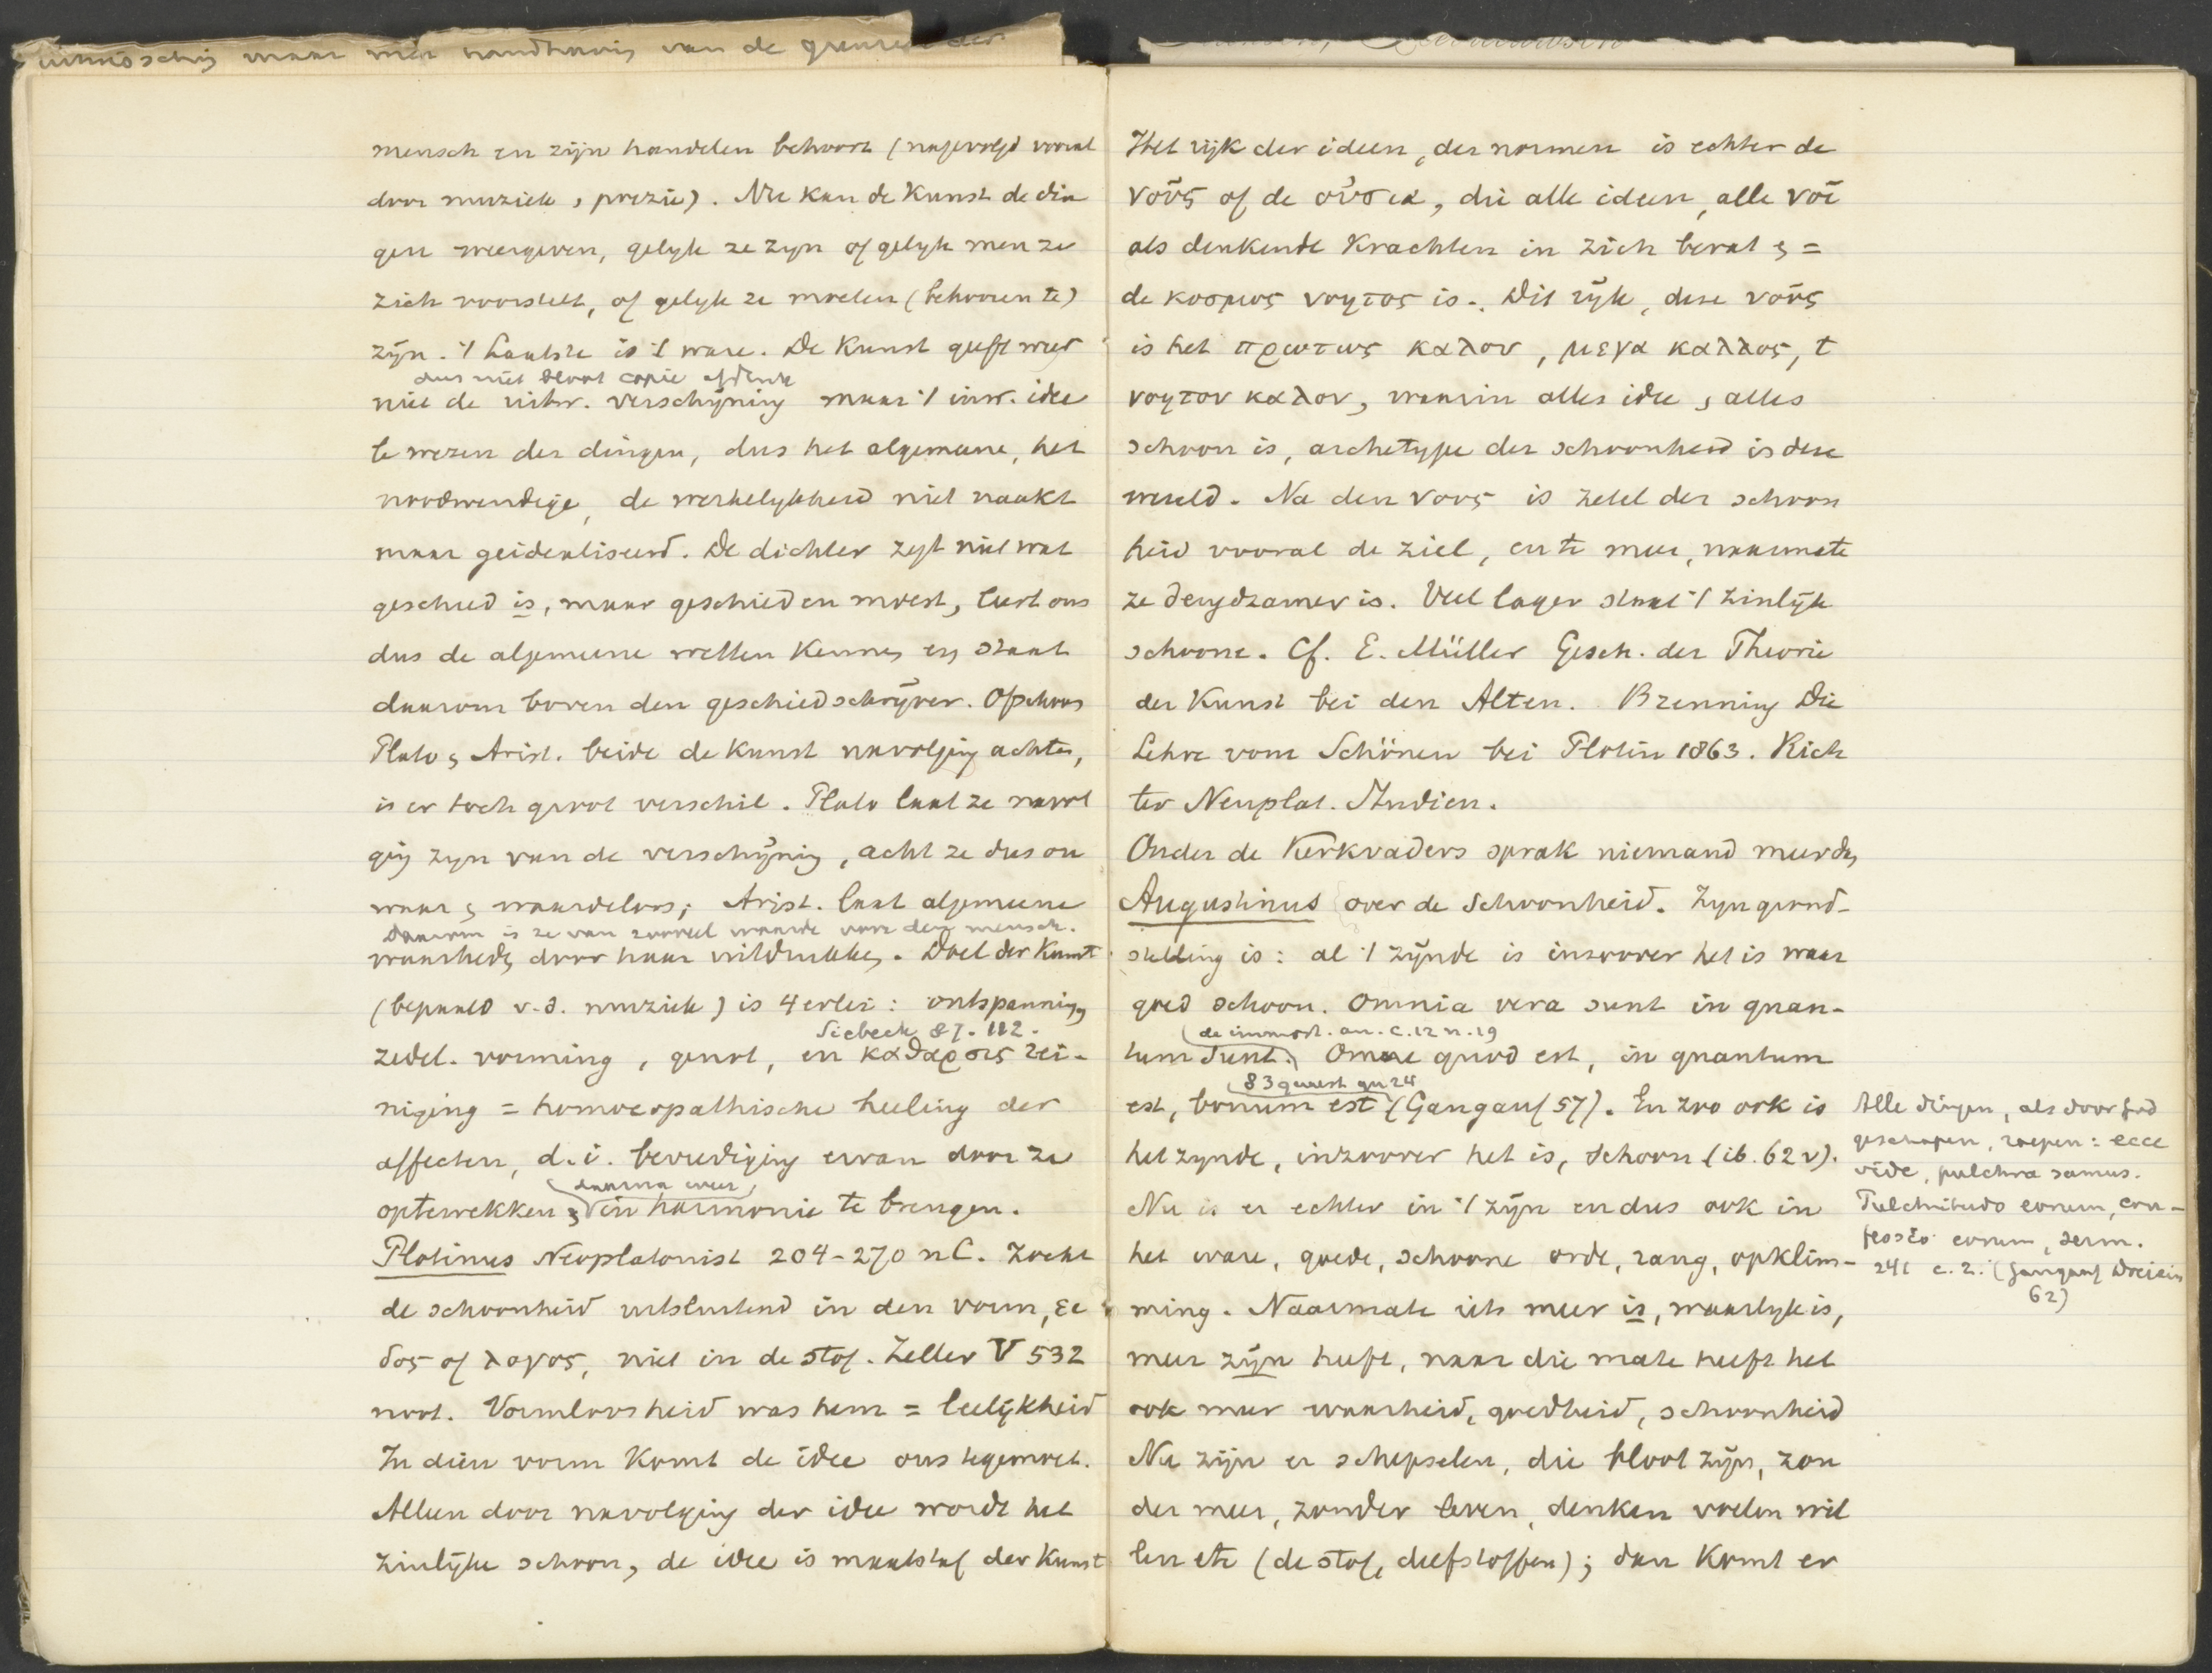 maar van de
mensch en zijn handelen behoort (nagevolgd vooral
door muziek, poezie). Nu kan de Kunst de din
gen weergeven, gelyk ze zyn of gelyk men ze
zich voorstelt, of gelyk ze moeten (behooren te)
zÿn. 't Laatste is 't ware. De Kunst geeft weer
dus niet bloot copie afdruk
niet de uitw. verschÿning maar 't inw. idee
te wezen der dingen, dus het algemeene, het
noodwendige, de werkelykheid niet naakt
maar geidealiseerd. De dichter zegt niet wat
geschied is, maar geschieden moest, leert ons
dus de algemeene wetten kennen en staat
daarom boven den geschiedschrÿver. Ofschoon
Plato & Arist. beide de Kunst navolging achten,
is er toch groot verschil. Plato laat ze navol
ging zyn van de verschÿning, acht ze dus on
waar & waardeloos; Arist. laat algemeene
Daarom is ze van zooveel waarde voor den mensch.
waarheden door haar uitdrukken. Doel der Kunst
(bepaald v.d. muziek) is 4erlei: ontspanning,
Siebeck 87. 112.
zedel. vorming, genot, en καθαρσις rei-
niging = homoeopathische heeling der
affecten, d.i. bevrediging ervan door ze
daarna weer
optewekken & in harmonie te brengen.
Plotinus Neoplatonist 204-270 n C. zocht
de schoonheid uitsluitend in den vorm, ει
δος of λογος, niet in de stof. Zeller V 532
noot. Vormloosheid was hem = leelÿkheid
In dien vorm komt de idee ons tegemoet.
Alleen door navolging der idee wordt het
zinlÿke schoon, de idee is maatstaf der Kunst
Het rijk der ideen, der normen is echter de
νοῦς of de οὐσια, die alle ideen, alle νοῖ
als denkende Krachten in zich bevat & =
de κοσμος νοητος is. Dit rÿk, deze νοῦς
is het πρωτως καλον, μεγα καλλος, t
νοητον καλον, waarin alles idee & alles
schoon is, archetype der schoonheid is deze
wereld. Na den νους is zetel der schoon
heid vooral de ziel, en te meer, naarmate
ze deugdzamer is. Veel lager staat 't zinlÿk
schoone. Cf. E. Müller Gesch. der Theorie
der Kunst bei den Alten. Brenning Die
Lehre vom Schönen bei Plotin 1863. Rich
ter Neuplat. Studien.
Onder de Kerkvaders sprak niemand meer dan
Augustinus over de schoonheid. Zyn grond-
stelling is: al 't zÿnde is inzoover het is waar
goed schoon. Omnia vera sunt in quan-
(de immort. an. c. 12 n. 19
tum sunt. Omne quod est, in quantum
83 quaest qu 24
est, bonum est (Gangauf 57). En zoo ook is
het zynde, inzoover het is, schoon (ib. 62 v).
Nu is er echter in 't zÿn en dus ook in
het ware, goede, schoone orde, rang, opklim-
ming. Naarmate iets meer is, waarlyk is,
meer zÿn heeft, naar die mate heeft het
ook meer waarheid, goedheid, schoonheid
Nu zÿn er schepselen, die bloot zÿn, zon
der meer, zonder leven, denken voelen wil
len etc (de stof, delfstoffen); dan komt er
Alle dingen, als door God
geschapen, roepen: ecce
vide, pulchra sumus.
Pulchritudo eorum, con-
fessio eorum, serm.
241 c. 2. (Gangauf
62)